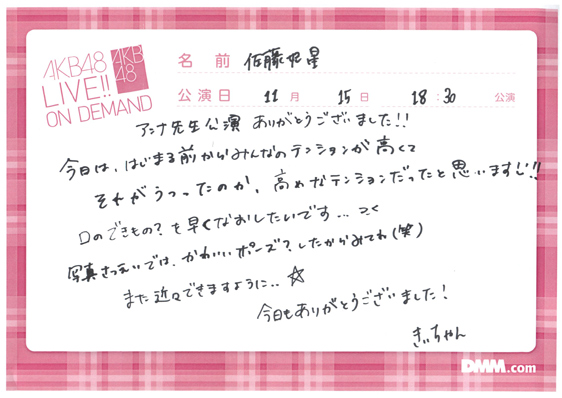 AKB48
LIVE!!
ON DEMAND
AKB
48
名前 佐藤妃星
公演日 11月 15日 18:30 公演
アンナ先生公演 ありがとうございました!!
今日は、はじまる前からみんなのテンションが高くて
それがうつったのか、高めなテンションだったと思いますじ!!
口のできもの?を早くなおしたいです…
写真さつえいでは、かわいいポーズ?したからみてね(笑)
また近々できますように..☆
今日もありがとうございました!
きぃちゃん
DMM.com